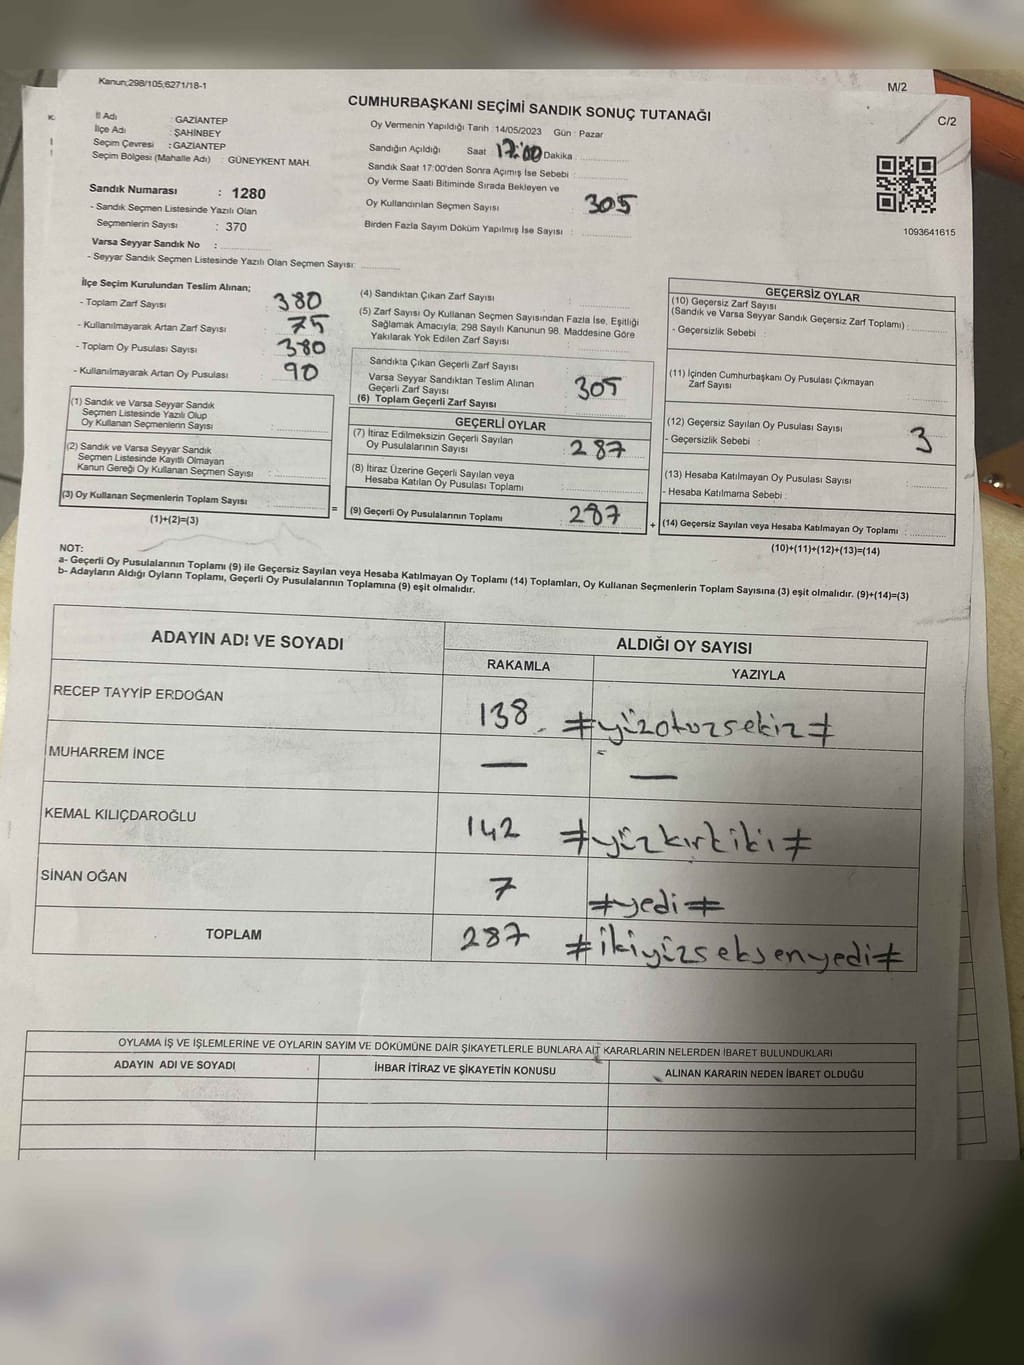 Kanun;298/105;6271/18-1
M/2
CUMHURBAŞKANI SEÇİMİ SANDIK SONUÇ TUTANAĞI
C/2
İl Adı : GAZİANTEP
İlçe Adı : ŞAHİNBEY
Seçim Çevresi : GAZİANTEP
Seçim Bölgesi (Mahalle Adı) : GÜNEYKENT MAH.
Sandık Numarası : 1280
- Sandık Seçmen Listesinde Yazılı Olan
Seçmenlerin Sayısı : 370
Varsa Seyyar Sandık No :
- Seyyar Sandık Seçmen Listesinde Yazılı Olan Seçmen Sayısı:
Oy Vermenin Yapıldığı Tarih :14/05/2023 Gün : Pazar
Sandığın Açıldığı Saat 17:00 Dakika :
Sandık Saat 17:00'den Sonra Açımış İse Sebebi :
Oy Verme Saati Bitiminde Sırada Bekleyen ve
Oy Kullandırılan Seçmen Sayısı : 305
Birden Fazla Sayım Döküm Yapılmış İse Sayısı :
1093641615
İlçe Seçim Kurulundan Teslim Alınan;
- Toplam Zarf Sayısı : 380
- Kullanılmayarak Artan Zarf Sayısı : 75
- Toplam Oy Pusulası Sayısı : 380
- Kullanılmayarak Artan Oy Pusulası : 90
(1) Sandık ve Varsa Seyyar Sandık
Seçmen Listesinde Yazılı Olup
Oy Kullanan Seçmenlerin Sayısı :
(2) Sandık ve Varsa Seyyar Sandık
Seçmen Listesinde Kayıtlı Olmayan
Kanun Gereği Oy Kullanan Seçmen Sayısı :
(3) Oy Kullanan Seçmenlerin Toplam Sayısı :
(1)+(2)=(3)
=
(4) Sandıktan Çıkan Zarf Sayısı :
(5) Zarf Sayısı Oy Kullanan Seçmen Sayısından Fazla İse, Eşitliği
Sağlamak Amacıyla, 298 Sayılı Kanunun 98. Maddesine Göre
Yakılarak Yok Edilen Zarf Sayısı :
Sandıkta Çıkan Geçerli Zarf Sayısı :
Varsa Seyyar Sandıktan Teslim Alınan
Geçerli Zarf Sayısı : 305
(6) Toplam Geçerli Zarf Sayısı
GEÇERLİ OYLAR
(7) İtiraz Edilmeksizin Geçerli Sayılan
Oy Pusulalarının Sayısı : 287
(8) İtiraz Üzerine Geçerli Sayılan veya
Hesaba Katılan Oy Pusulası Toplamı :
(9) Geçerli Oy Pusulalarının Toplamı : 287
+
GEÇERSİZ OYLAR
(10) Geçersiz Zarf Sayısı
(Sandık ve Varsa Seyyar Sandık Geçersiz Zarf Toplamı) :
- Geçersizlik Sebebi :
(11) İçinden Cumhurbaşkanı Oy Pusulası Çıkmayan
Zarf Sayısı :
(12) Geçersiz Sayılan Oy Pusulası Sayısı : 3
- Geçersizlik Sebebi :
(13) Hesaba Katılmayan Oy Pusulası Sayısı :
- Hesaba Katılmama Sebebi :
(14) Geçersiz Sayılan veya Hesaba Katılmayan Oy Toplamı :
(10)+(11)+(12)+(13)=(14)
NOT:
a- Geçerli Oy Pusulalarının Toplamı (9) ile Geçersiz Sayılan veya Hesaba Katılmayan Oy Toplamı (14) Toplamları, Oy Kullanan Seçmenlerin Toplam Sayısına (3) eşit olmalıdır. (9)+(14)=(3)
b- Adayların Aldığı Oyların Toplamı, Geçerli Oy Pusulalarının Toplamına (9) eşit olmalıdır.
ADAYIN ADI VE SOYADI
ALDIĞI OY SAYISI
RAKAMLA
YAZIYLA
RECEP TAYYİP ERDOĞAN 138 #yüzotuzsekiz#
MUHARREM İNCE — —
KEMAL KILIÇDAROĞLU 142 #yüzkırkiki#
SİNAN OĞAN 7 #yedi#
TOPLAM 287 #ikiyüzseksenyedi#
OYLAMA İŞ VE İŞLEMLERİNE VE OYLARIN SAYIM VE DÖKÜMÜNE DAİR ŞİKAYETLERLE BUNLARA AİT KARARLARIN NELERDEN İBARET BULUNDUKLARI
ADAYIN ADI VE SOYADI
İHBAR İTİRAZ VE ŞİKAYETİN KONUSU
ALINAN KARARIN NEDEN İBARET OLDUĞU